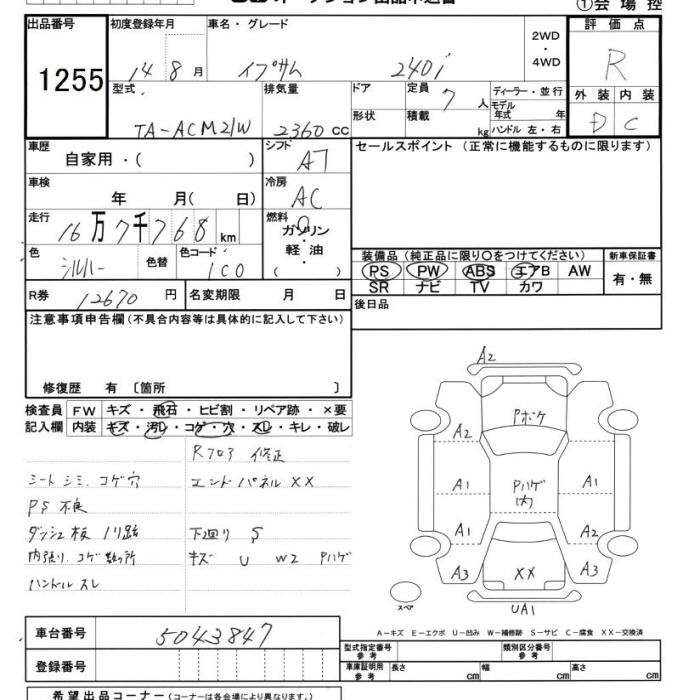 オークション出品申込書
①会場控
出品番号 初度登録年月 車名・グレード 2WD・4WD 評価点
1255 14 8月 イプサム 240i R
型式 排気量 ドア 定員 7人 ディーラー・並行 外装 内装
TA-ACM21W 2360cc 形状 積載 kg モデル年式 年 ハンドル 左・右 D C
車歴 シフト セールスポイント (正常に機能するものに限ります)
自家用・( ) AT
車検 冷房
年 月( 日) AC
走行 燃料
16万7千768km ガソリン・軽油( )
色 色替 色コード 装備品 (純正品に限り〇をつけてください) 新車保証書
シルバー 1C0 PS PW ABS エアB AW 有・無
SR ナビ TV カワ
R券 12670円 名変期限 月 日 後日品
注意事項申告欄(不具合内容等は具体的に記入して下さい)
修復歴 有 [箇所 ]
検査員 FW キズ・飛石・ヒビ割・リペア跡・×要
記入欄 内装 キズ・汚レ・コゲ・穴・スレ・キレ・破レ
R703 修正
シートシミ、コゲ穴 エンドパネルXX
PS不良
ダッシュ板ノリ跡 下回り S
内張り、コゲ数ヶ所 キズ U W2 Pハゲ
ハンドルスレ
A2
Pボケ
A2
A1 Pハゲ内 A1
A1 A2
A3 XX A3
スペア
UA1
A-キズ E-エクボ U-凹み W-補修跡 S-サビ C-腐食 XX-交換済
車台番号 5043847
型式指定番号参考 類別区分番号参考
登録番号 車庫証明用参考 長さ cm 幅 cm 高さ cm
希望出品コーナー(コーナーは各会場により異なります。)